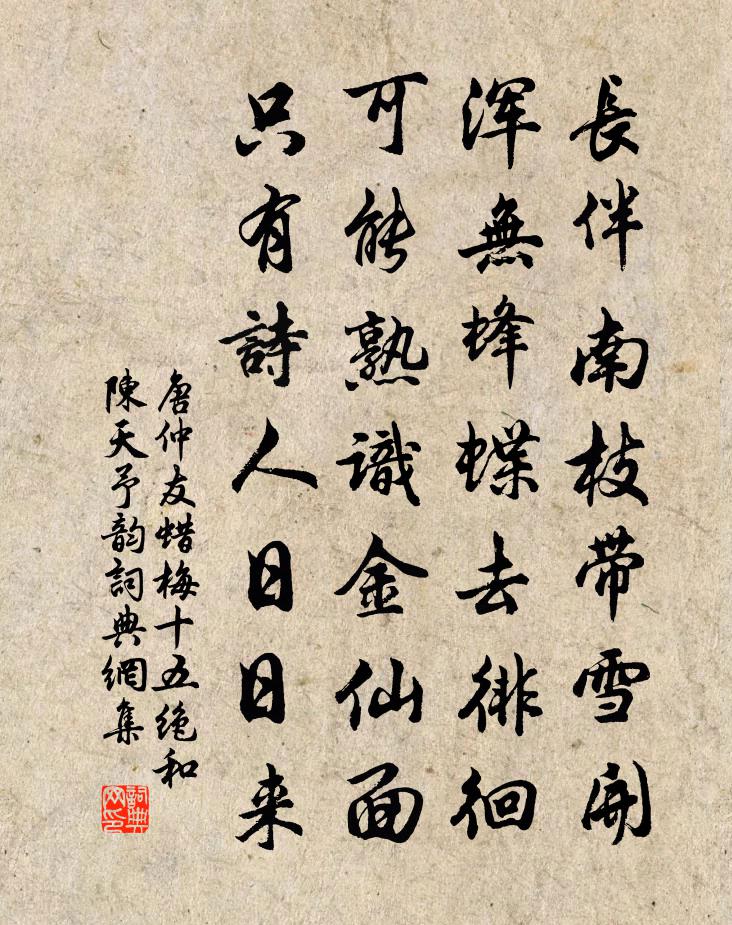 長伴南枝带雪開
浑無蜂蝶去徘徊
可能熟識金仙面
只有詩人日日来
唐仲友蜡梅十五绝和
陳天予韵詞典網集
詞典
网印